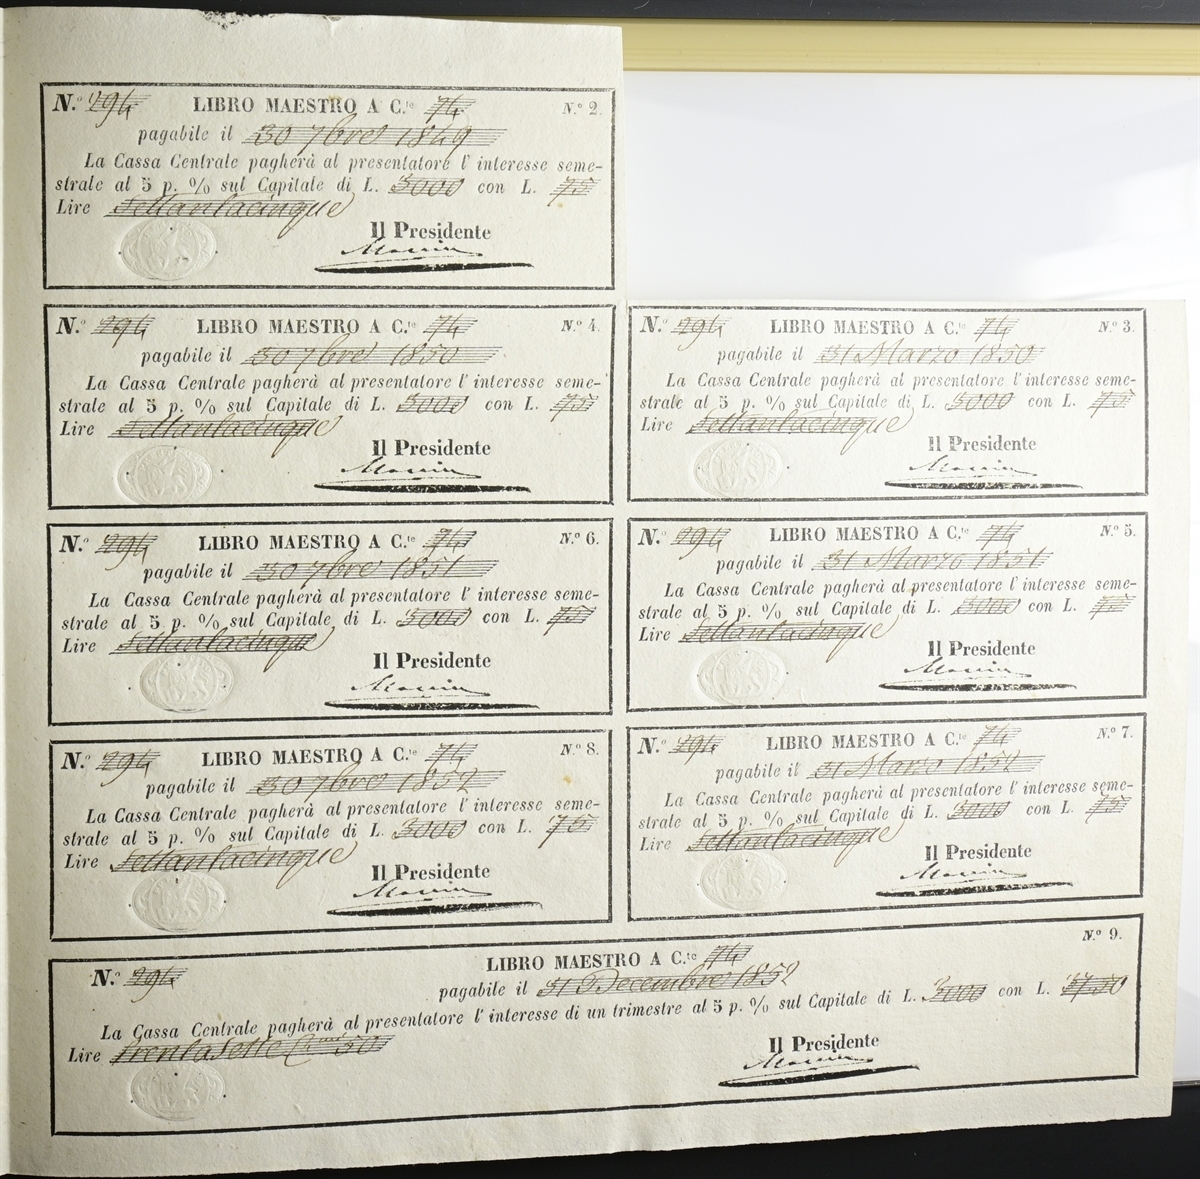 N.º 294 LIBRO MAESTRO A C.te 74 N.º 2.
pagabile il 30 7bre 1849
La Cassa Centrale pagherà al presentatore l'interesse seme-
strale al 5 p. % sul Capitale di L. 3000 con L. 75
Lire Settantacinque
Il Presidente
N.º 294 LIBRO MAESTRO A C.te 74 N.º 4.
pagabile il 30 7bre 1850
La Cassa Centrale pagherà al presentatore l'interesse seme-
strale al 5 p. % sul Capitale di L. 3000 con L. 75
Lire Settantacinque
Il Presidente
N.º 294 LIBRO MAESTRO A C.te 74 N.º 3.
pagabile il 31 Marzo 1850
La Cassa Centrale pagherà al presentatore l'interesse seme-
strale al 5 p. % sul Capitale di L. 3000 con L. 75
Lire Settantacinque
Il Presidente
N.º 294 LIBRO MAESTRO A C.te 74 N.º 6.
pagabile il 30 7bre 1851
La Cassa Centrale pagherà al presentatore l'interesse seme-
strale al 5 p. % sul Capitale di L. 3000 con L. 75
Lire Settantacinque
Il Presidente
N.º 294 LIBRO MAESTRO A C.te 74 N.º 5.
pagabile il 31 Marzo 1851
La Cassa Centrale pagherà al presentatore l'interesse seme-
strale al 5 p. % sul Capitale di L. 3000 con L. 75
Lire Settantacinque
Il Presidente
N.º 294 LIBRO MAESTRO A C.te 74 N.º 8.
pagabile il 30 7bre 1852
La Cassa Centrale pagherà al presentatore l'interesse seme-
strale al 5 p. % sul Capitale di L. 3000 con L. 75
Lire Settantacinque
Il Presidente
N.º 294 LIBRO MAESTRO A C.te 74 N.º 7.
pagabile il 31 Marzo 1852
La Cassa Centrale pagherà al presentatore l'interesse seme-
strale al 5 p. % sul Capitale di L. 3000 con L. 75
Lire Settantacinque
Il Presidente
N.º 294 LIBRO MAESTRO A C.te 74 N.º 9.
pagabile il 31 Decembre 1852
La Cassa Centrale pagherà al presentatore l'interesse di un trimestre al 5 p. % sul Capitale di L. 3000 con L. 37,50
Lire trentasette C.mi 50
Il Presidente